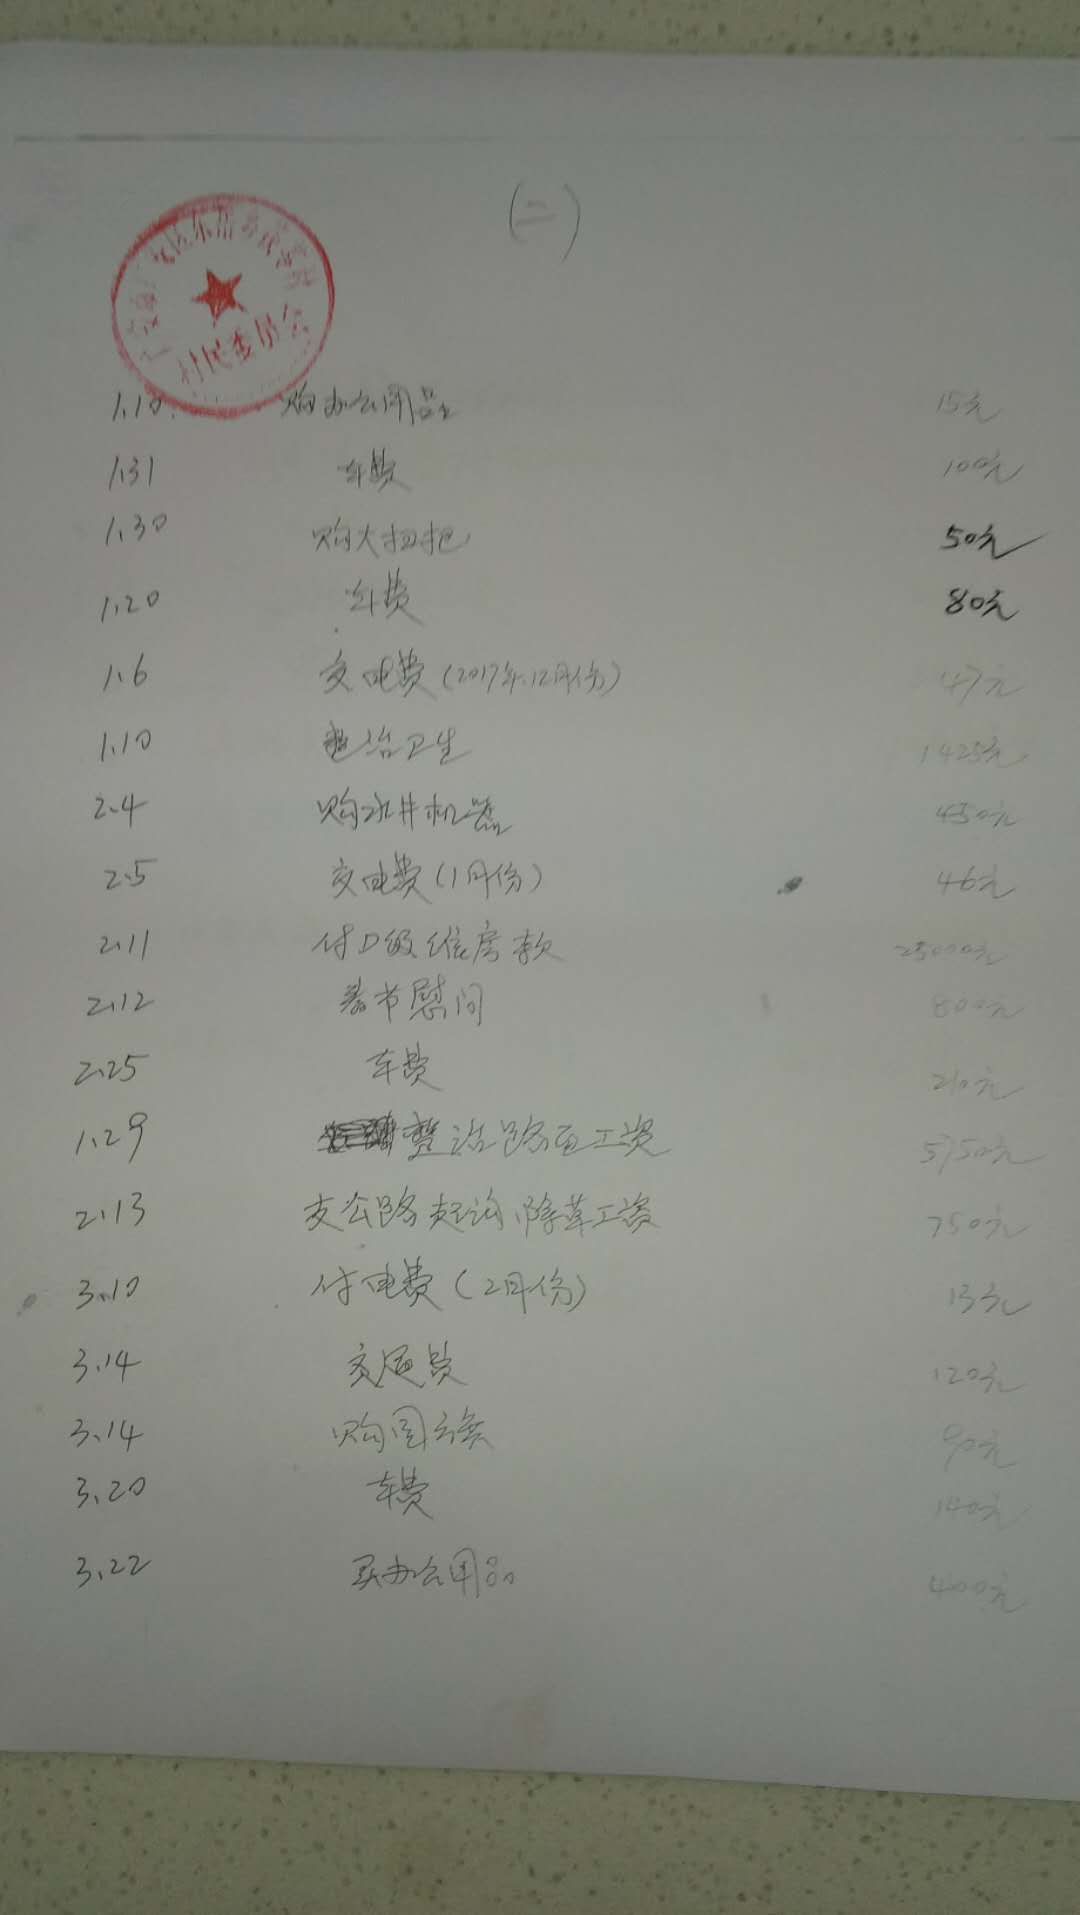 (二)
村民委员会
1.10 购办公用品 15元
1.31 车费 100元
1.30 购大扫把 50元
1.20 车费 80元
1.6 交电费(2017年12月份) 47元
1.10 治卫生 1425元
2.4 购水井机器 450元
2.5 交电费(1月份) 46元
2.11 付D级危房款 25000元
2.12 春节慰问 800元
2.25 车费 210元
1.29 整治路面工资 5750元
2.13 支公路 除草工资 750元
3.10 付电费(2月份) 13元
3.14 交 费 120元
3.14 购国旗 90元
3.20 车费 140元
3.22 买办公用品 400元